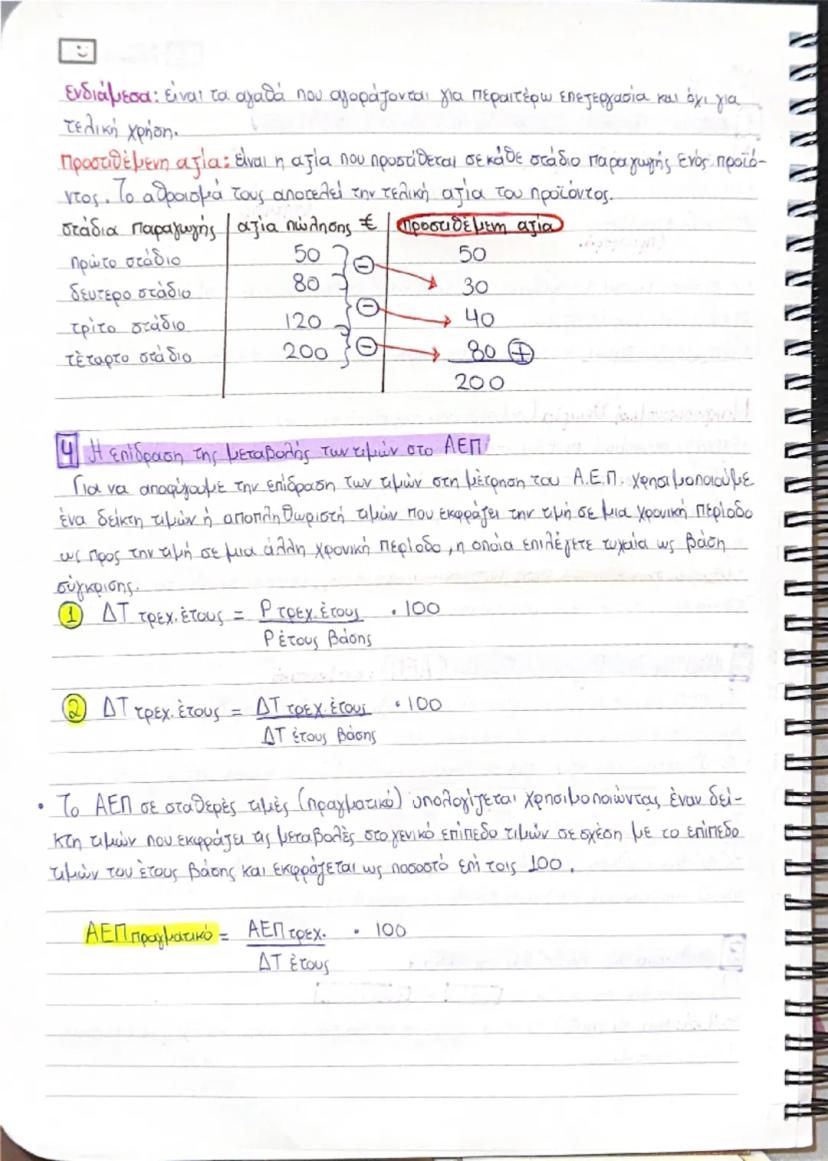 Ενδιάμεσα: είναι τα αγαθά που αγοράζονται για περαιτέρω επεξεργασία και όχι για
τελική χρήση.
Προστιθέμενη αξία: είναι η αξία που προστίθεται σε κάθε στάδιο παραγωγής ενός προϊό-
ντος. Το άθροισμά τους αποτελεί την τελική αξία του προϊόντος.
στάδια παραγωγής | αξία πώλησης € | προστιθέμενη αξία
πρώτο στάδιο 50 50
δεύτερο στάδιο 80 30
τρίτο στάδιο 120 40
τέταρτο στάδιο 200 80 +
200
4 Η επίδραση της μεταβολής των τιμών στο ΑΕΠ
Για να αποφύγουμε την επίδραση των τιμών στη μέτρηση του Α.Ε.Π. χρησιμοποιούμε
ένα δείκτη τιμών ή αποπληθωριστή τιμών που εκφράζει την τιμή σε μια χρονική περίοδο
ως προς την τιμή σε μια άλλη χρονική περίοδο, η οποία επιλέγετε τυχαία ως βάση
σύγκρισης.
1 ΔΤ τρεχ. έτους = P τρεχ. έτους / P έτους βάσης · 100
2 ΔΤ τρεχ. έτους = ΔΤ τρεχ. έτους / ΔΤ έτους βάσης · 100
• Το ΑΕΠ σε σταθερές τιμές (πραγματικό) υπολογίζεται χρησιμοποιώντας έναν δεί-
κτη τιμών που εκφράζει τις μεταβολές στο γενικό επίπεδο τιμών σε σχέση με το επίπεδο
τιμών του έτους βάσης και εκφράζεται ως ποσοστό επί τοις 100.
ΑΕΠ πραγματικό = ΑΕΠ τρεχ. / ΔΤ έτους · 100